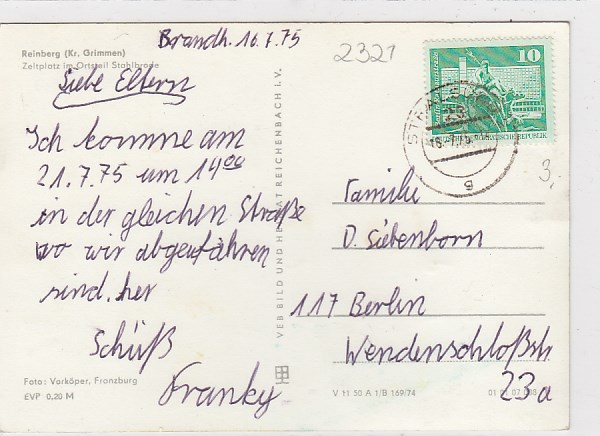 Brandh. 16.7.75
2321
Reinberg (Kr. Grimmen)
Zeltplatz im Ortsteil Stahlbrode
Liebe Eltern
Ich komme am
21.7.75 um 14 00
in der gleichen Straße
wo wir abgefahren
sind. her
Schüß
Franky
Foto: Vorköper, Franzburg
EVP 0,20 M
VEB BILD UND HEIMAT REICHENBACH I. V.
10
DEUTSCHE DEMOKRATISCHE REPUBLIK
STRALSUND
g
3,
Familie
D. Siebenborn
117 Berlin
Wendenschloßstr.
23a
V 11 50 A 1/B 169/74